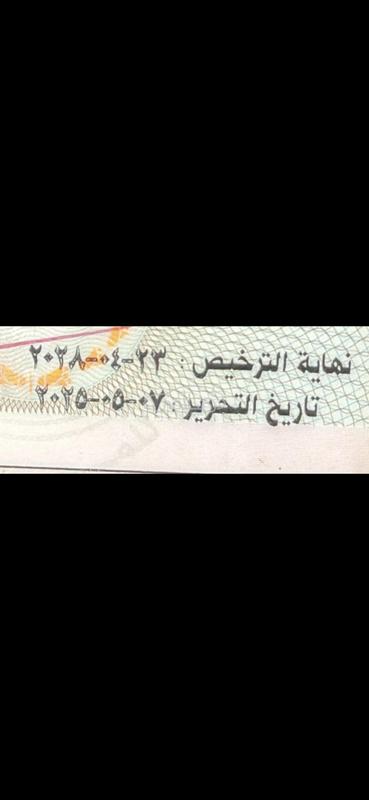 نهاية الترخيص : ٢٠٢٨-٠٤-٢٣
تاريخ التحرير : ٢٠٢٥-٠٥-٠٧